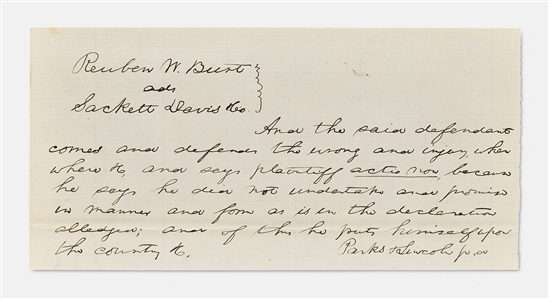 Reuben W. Burt
ads
Sackett Davis &Co.
And the said defendant
comes and defends the wrong and injury when
where &c and says plaintiff actio non, because
he says he did not undertake and promise
in manner and form as is in the declaration
alledged; and of this he puts himself upon
the country &c. Parks & Lincoln p.d